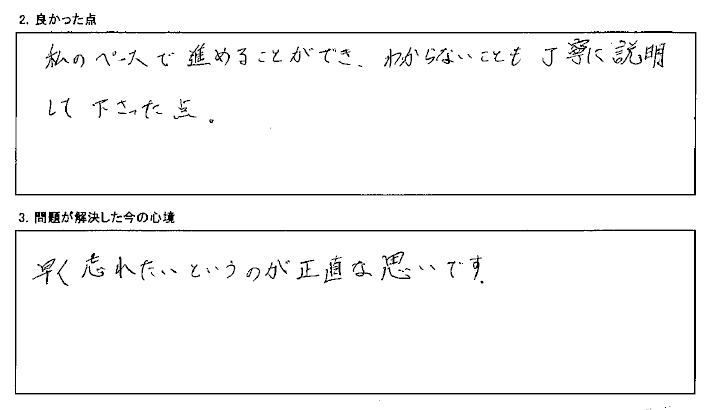 2. 良かった点
私のペースで進めることができ、わからないことも丁寧に説明
して下さった点。
3. 問題が解決した今の心境
早く忘れたいというのが正直な思いです。